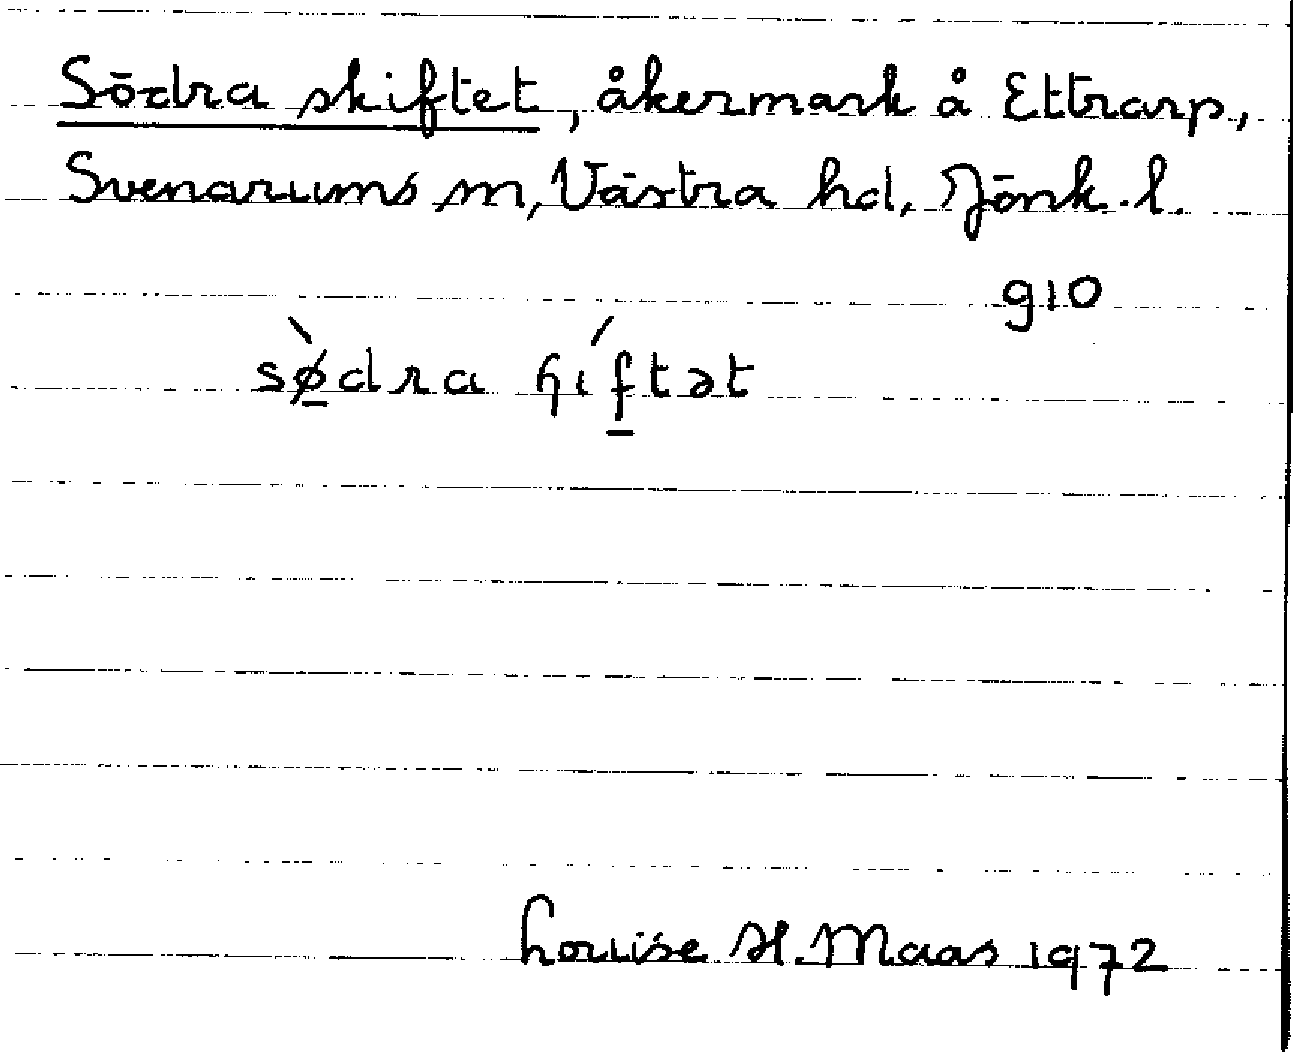 Södra skiftet, åkermark å Ettrarp,
Svenarums sn, Västra hd, Jönk. l.
910
sø̀dra ɧıf́tət
Louise H. Maas 1972